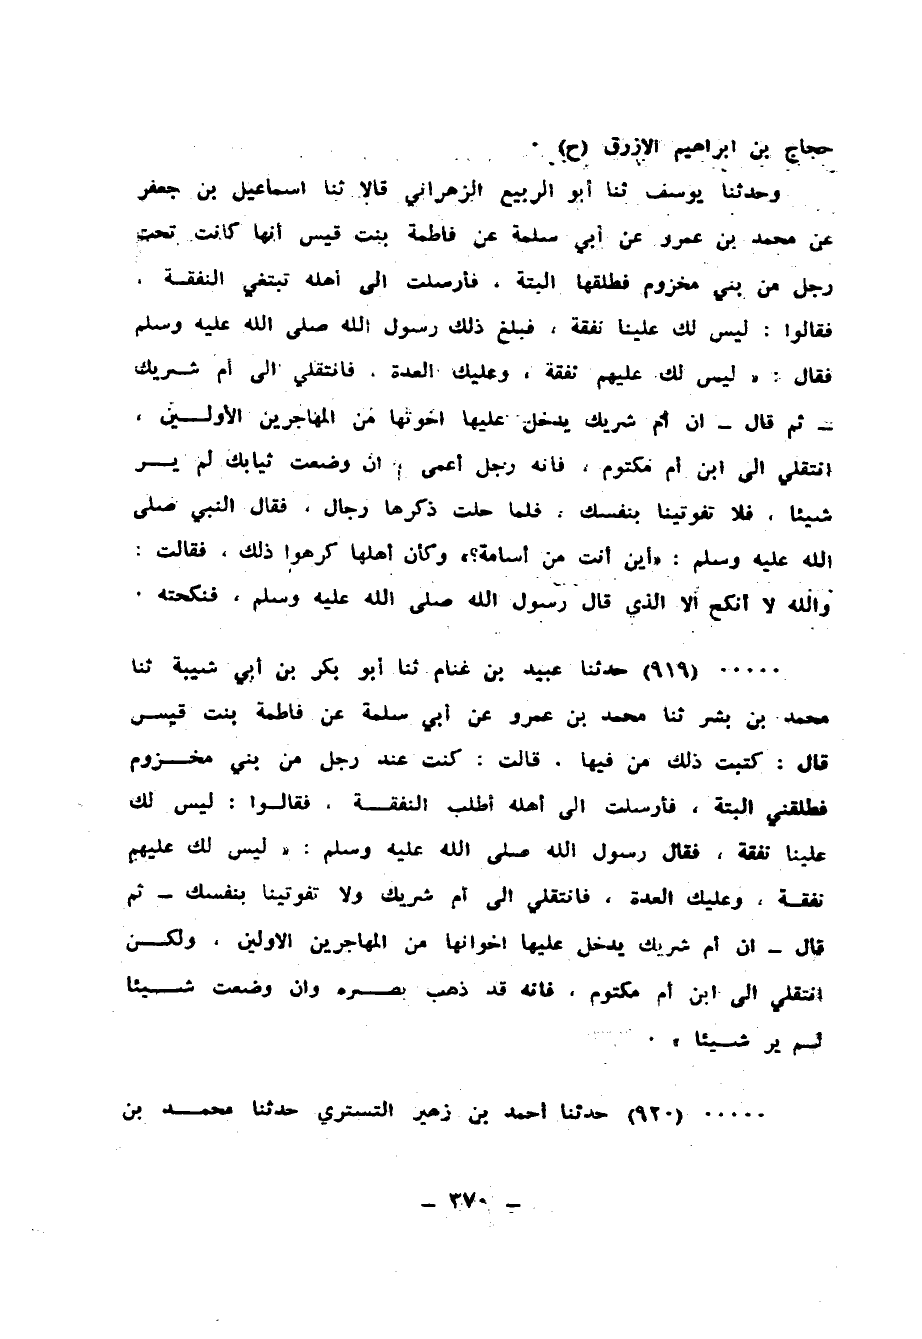 حجاج بن ابراهيم الازرق (ح) ٠
وحدثنا يوسف ثنا أبو الربيع الزهراني قالا ثنا اسماعيل بن جعفر
عن محمد بن عمرو عن أبي سلمة عن فاطمة بنت قيس أنها كانت تحت
رجل من بني مخزوم فطلقها البتة ، فأرسلت الى أهله تبتغي النفقة ،
فقالوا : ليس لك علينا نفقة ، فبلغ ذلك رسول الله صلى الله عليه وسلم
فقال : « ليس لك عليهم نفقة ، وعليك العدة ، فانتقلي الى أم شريك
ـ ثم قال ـ ان أم شريك يدخل عليها اخوتها من المهاجرين الأولين ،
انتقلي الى ابن أم مكتوم ، فانه رجل أعمى ، ان وضعت ثيابك لم ير
شيئا ، فلا تفوتينا بنفسك ، فلما حلت ذكرها رجال ، فقال النبي صلى
الله عليه وسلم : «أين أنت من أسامة؟» وكأن أهلها كرهوا ذلك ، فقالت :
والله لا أنكح الا الذي قال رسول الله صلى الله عليه وسلم ، فنكحته ٠
٠٠٠٠٠ (٩١٩) حدثنا عبيد بن غنام ثنا أبو بكر بن أبي شيبة ثنا
محمد بن بشر ثنا محمد بن عمرو عن أبي سلمة عن فاطمة بنت قيس
قال : كتبت ذلك من فيها ، قالت : كنت عند رجل من بني مخزوم
فطلقني البتة ، فأرسلت الى أهله أطلب النفقة ، فقالوا : ليس لك
علينا نفقة ، فقال رسول الله صلى الله عليه وسلم : « ليس لك عليهم
نفقة ، وعليك العدة ، فانتقلي الى أم شريك ولا تفوتينا بنفسك ـ ثم
قال ـ ان أم شريك يدخل عليها اخوانها من المهاجرين الاولين ، ولكن
انتقلي الى ابن أم مكتوم ، فانه قد ذهب بصره وان وضعت شيئا
لم ير شيئا » ٠
٠٠٠٠٠ (٩٢٠) حدثنا أحمد بن زهير التستري حدثنا محمد بن
ـ ٣٧٠ ـ